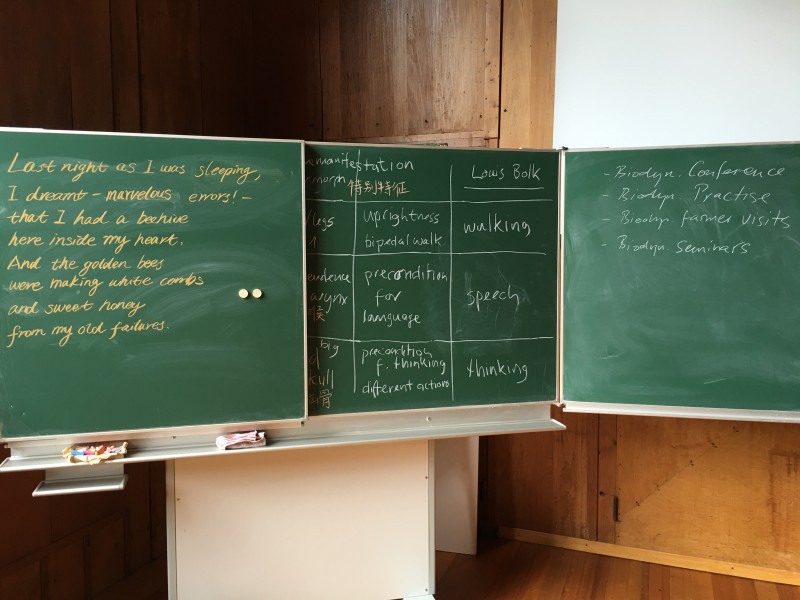 Last night as I was sleeping,
I dreamt - marvelous errors! -
that I had a beehive
here inside my heart.
And the golden bees
were making white combs
and sweet honey
from my old failures.
emanifestation
Louis Bolk
morph 特别特征
legs
uprightness
bipedal walk
walking
precondition
for
language
speech
big
kull
precondition
f. thinking
different actions
thinking
- Biodyn. Conference
- Biodyn. Practise
- Biodyn farmer visits
- Biodyn. seminars